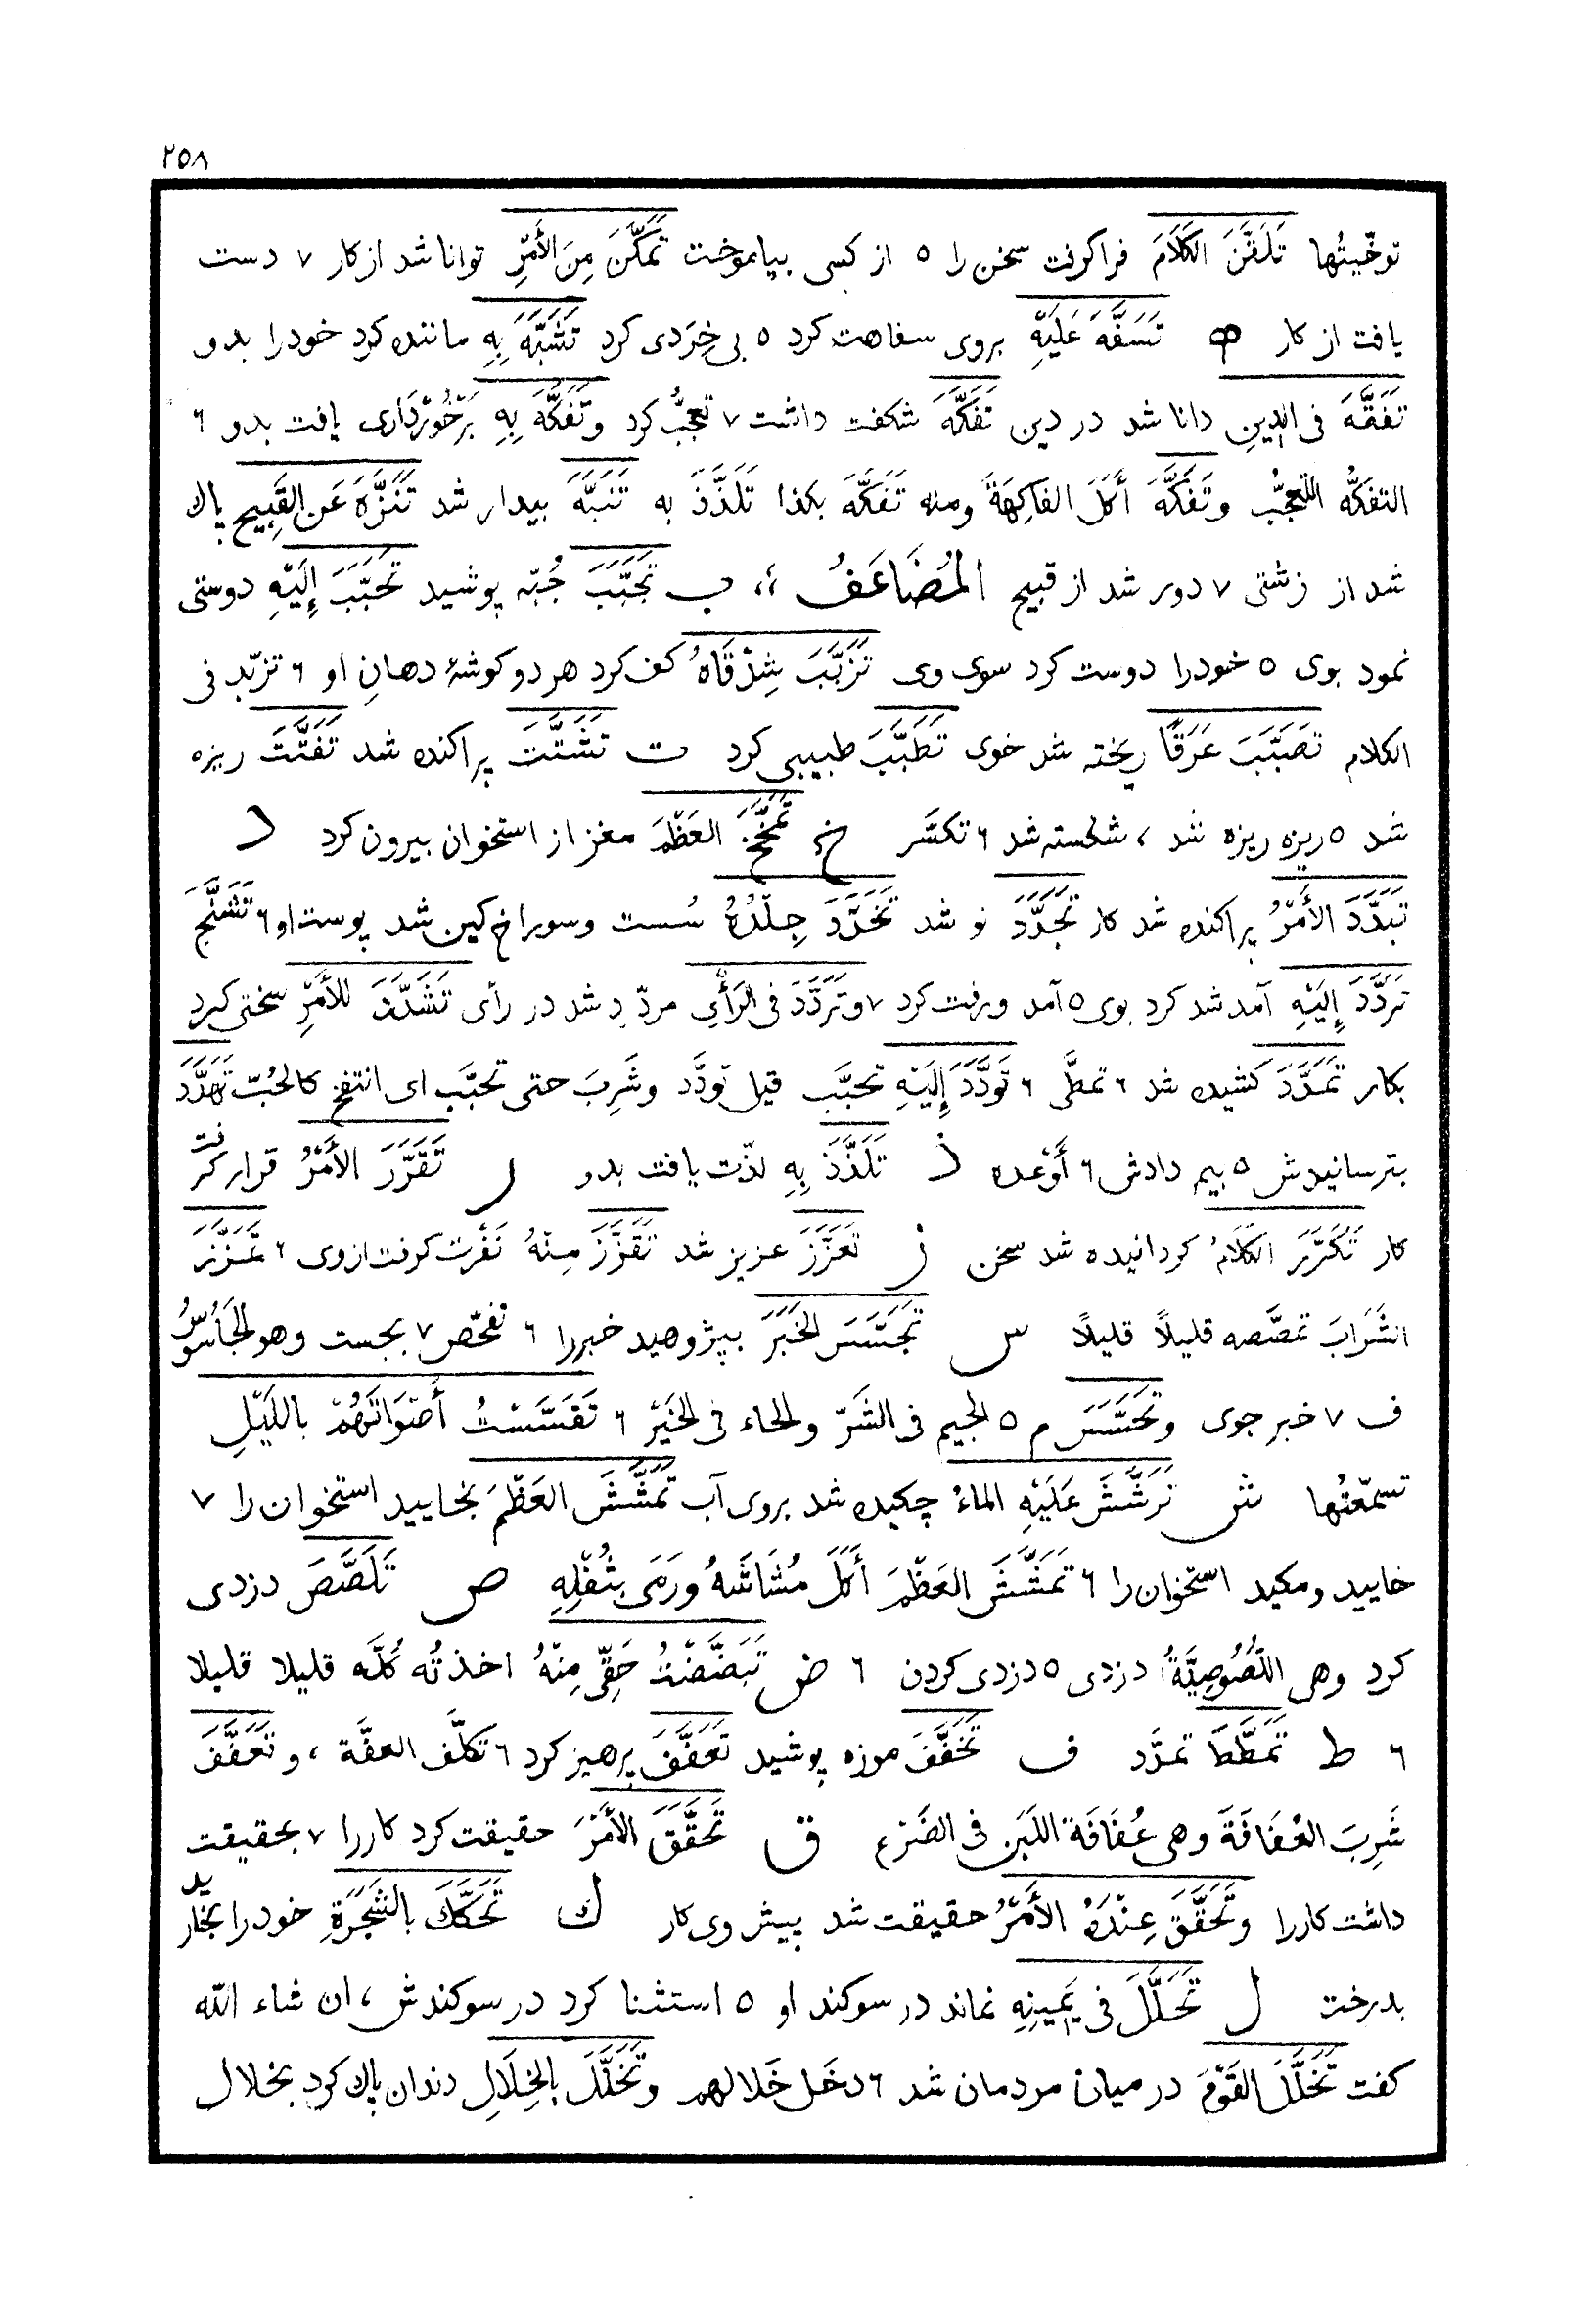 ٢٥٨
توخّيتُها تَلَقَّنَ الكَلَامَ فراكرفت سخن را ٥ از كسى بياموخت تَمَكَّنَ مِنَ الأَمْرِ توانا شد از كار ٧ دست
يافت از كار ه تَسَفَّهَ عَلَيْهِ بروى سفاهت كرد ٥ بى خِرَدى كرد تَشَبَّهَ بِهِ ماننده كرد خودرا بدو
تَفَقَّهَ فى الدينِ دانا شد در دين تَفَكَّهَ شكفت داشت ٧ تعجّب كرد وتَفَكَّهَ بِهِ بَرْخُوْرْدَارى يافت بدو ٦
التفكُّه التعجّب وتَفَكَّهَ أَكَلَ الفاكِهَةَ ومنه تَفَكَّهَ بكذا تَلَذَّذَ به تَنَبَّهَ بيدار شد تَنَزَّهَ عَنِ القَبِيحِ پاك
شد از زشتى ٧ دور شد از قبيح المُضَاعَفُ ،، ب تَجَبَّبَ جُبّه پوشيد تَحَبَّبَ إِلَيْهِ دوستى
نمود بوى ٥ خودرا دوست كرد سوى وى تَزَبَّبَ شِدْقَاهُ كف كرد هر دو كوشهٔ دهانِ او ٦ تزبّد فى
الكلام تَصَبَّبَ عَرَقًا ريخته شد خوى تَطَبَّبَ طبيبى كرد ت تَشَتَّتَ پراكنده شد تَفَتَّتَ ريزه
شد ٥ ريزه ريزه شد ، شكسته شد ٦ تكسّر خ تَمَخَّخَ العَظْمَ مغز از استخوان بيرون كرد د
تَبَدَّدَ الأَمْرُ پراكنده شد كار تَجَدَّدَ نو شد تَخَدَّدَ جِلْدُهُ سُست وسوراخ كين شد پوست او ٦ تَشَنَّجَ
تَرَدَّدَ إِلَيْهِ آمد شد كرد بوى ٥ آمد ورفت كرد ٧ وتَرَدَّدَ فى الرَأْيِ مردّد شد در رأى تَشَدَّدَ للأَمْرِ سختى كرد
بكار تَمَدَّدَ كشيده شد ٦ تمطَّى ٦ تَوَدَّدَ إِلَيْهِ تحبَّب قيل تودَّد وشَرِبَ حتى تحبَّب اى انتفخ كالحُبّ تَهَدَّدَ
بترسانيدش ٥ بيم دادش ٦ أَوْعده ذ تَلَذَّذَ بِهِ لذّت يافت بدو ر تَقَرَّرَ الأَمْرُ قرار كرفت
كار تَكَرَّرَ الكَلَامُ كردانيده شد سخن ز تَعَزَّزَ عزيز شد تَقَزَّزَ مِنْهُ نَفْرت كرفت ازوى ٦ تَمَزَّزَ
الشَرَابَ تمصّصه قليلاً قليلاً س تَجَسَّسَ الخَبَرَ بپژوهيد خبررا ٦ تفحّص ٧ بجست وهو الجَاسُوسُ
ف ٧ خبر جوى وتَحَسَّسَ م ٥ الجيم فى الشَرّ والحاء فى الخَيْرْ ٦ تَقَسَّسْتُ أَصْوَاتَهُمْ باللَيْلِ
تسمّعتُها ش تَرَشَّشَ عَلَيْهِ الماءُ چكيده شد بروى آب تَمَشَّشَ العَظْمَ بخاييد استخوان را ٧
خاييد ومكيد استخوان را ٦ تَمَشَّشَ العَظْمَ أَكَلَ مُشَاشَهُ ورَمَى بثُفْلِهِ ص تَلَصَّصَ دزدى
كرد وهى اللُصُوصِيَّةُ دزدى ٥ دزدى كردن ٦ ض تَبَضَّضْتُ حَقِّى مِنْهُ اخذتُه كُلَّه قليلا قليلا
٦ ط تَمَطَّطَ تمدَّد ف تَخَفَّفَ موزه پوشيد تَعَفَّفَ پرهيز كرد ٦ تكلَّف العفَّة ، وتَعَفَّفَ
شَرِبَ العُفَافَةَ وهى عُفَافَة اللَبَنِ فى الضَرْعِ ق تَحَقَّقَ الأَمْرَ حقيقت كرد كاررا ٧ بحقيقت
داشت كاررا وتَحَقَّقَ عِنْدَهُ الأَمْرُ حقيقت شد پيش وى كار ك تَحَكَّكَ بالشَجَرَةِ خودرا بخاريد
بدرخت ل تَحَلَّلَ فى يَمِينِهِ نماند در سوكند او ٥ استثنا كرد در سوكندش ، ان شاء الله
كفت تَخَلَّلَ القَوْمَ در ميان مردمان شد ٦ دخَل خَلالهم وتَخَلَّلَ بالخِلَالِ دندان پاك كرد بخلال